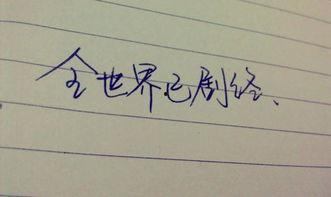 全世界已剧终、